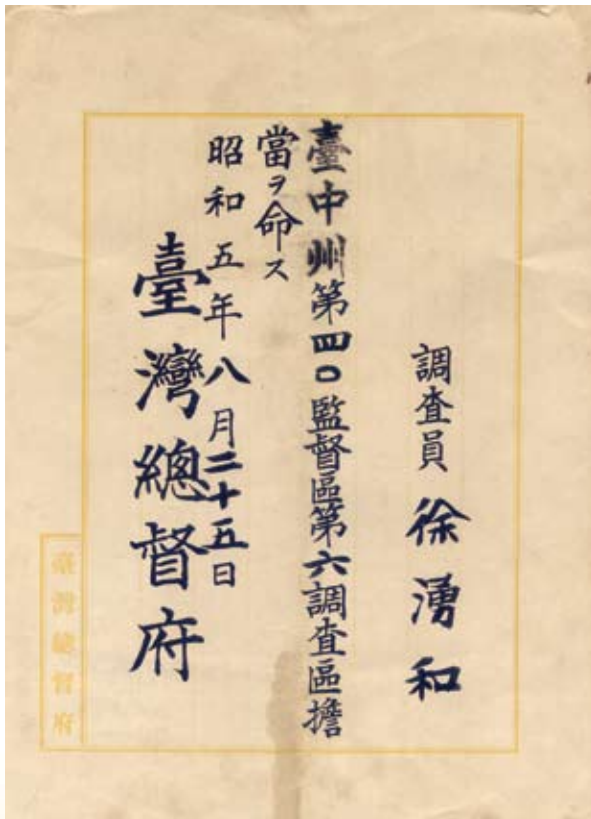 調査員 徐湧和
臺中州第四〇監督區第六調查區擔
當ヲ命ス
昭和五年八月二十五日
臺灣總督府
臺灣總督府